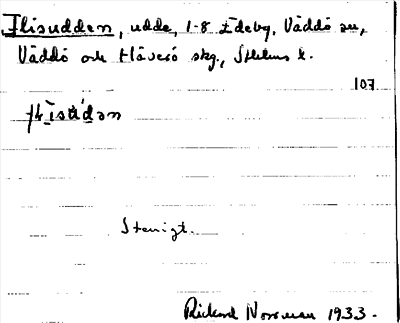 Flisudden, udde, 1-8 Edeby, Väddö sn,
Väddö och Häverö skg., Sthlms l.
107
Stenigt.
Rickard Norrman 1933.